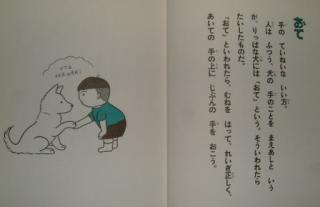 おて
手の ていねいな いい方。
人は ふつう、犬の 手のことを まえあしと いう
が、りっぱな犬には「おて」という。そういわれたら
たいしたものだ。
「おて」といわれたら、むねを はって、れいぎ正しく、
あいての 手の上に じぶんの 手を おこう。